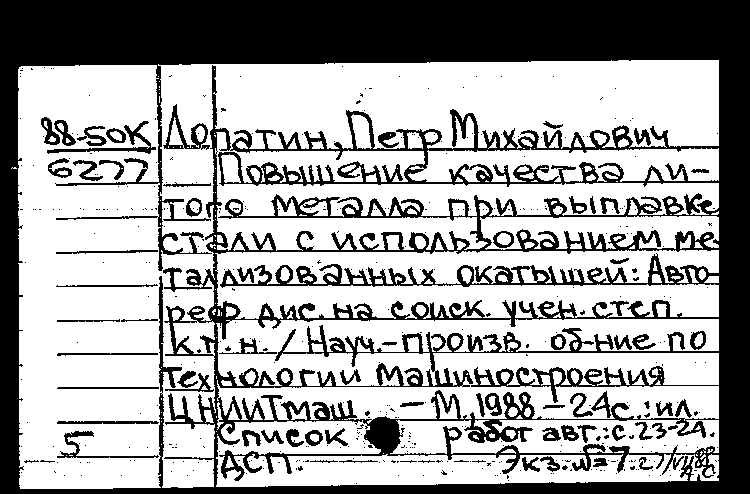 88-50К Лопатин, Петр Михайлович.
6277 Повышение качества ли-
того металла при выплавке
стали с использованием ме-
таллизованных окатышей: Авто-
реф дис. на соиск. учен. степ.
к.т.н. / Науч.-произв. об-ние по
технологии машиностроения
ЦНИИТмаш. – М., 1988. – 24с.: ил.
5 Список работ авт.: с. 23-24.
ДСП. Экз. № 7.